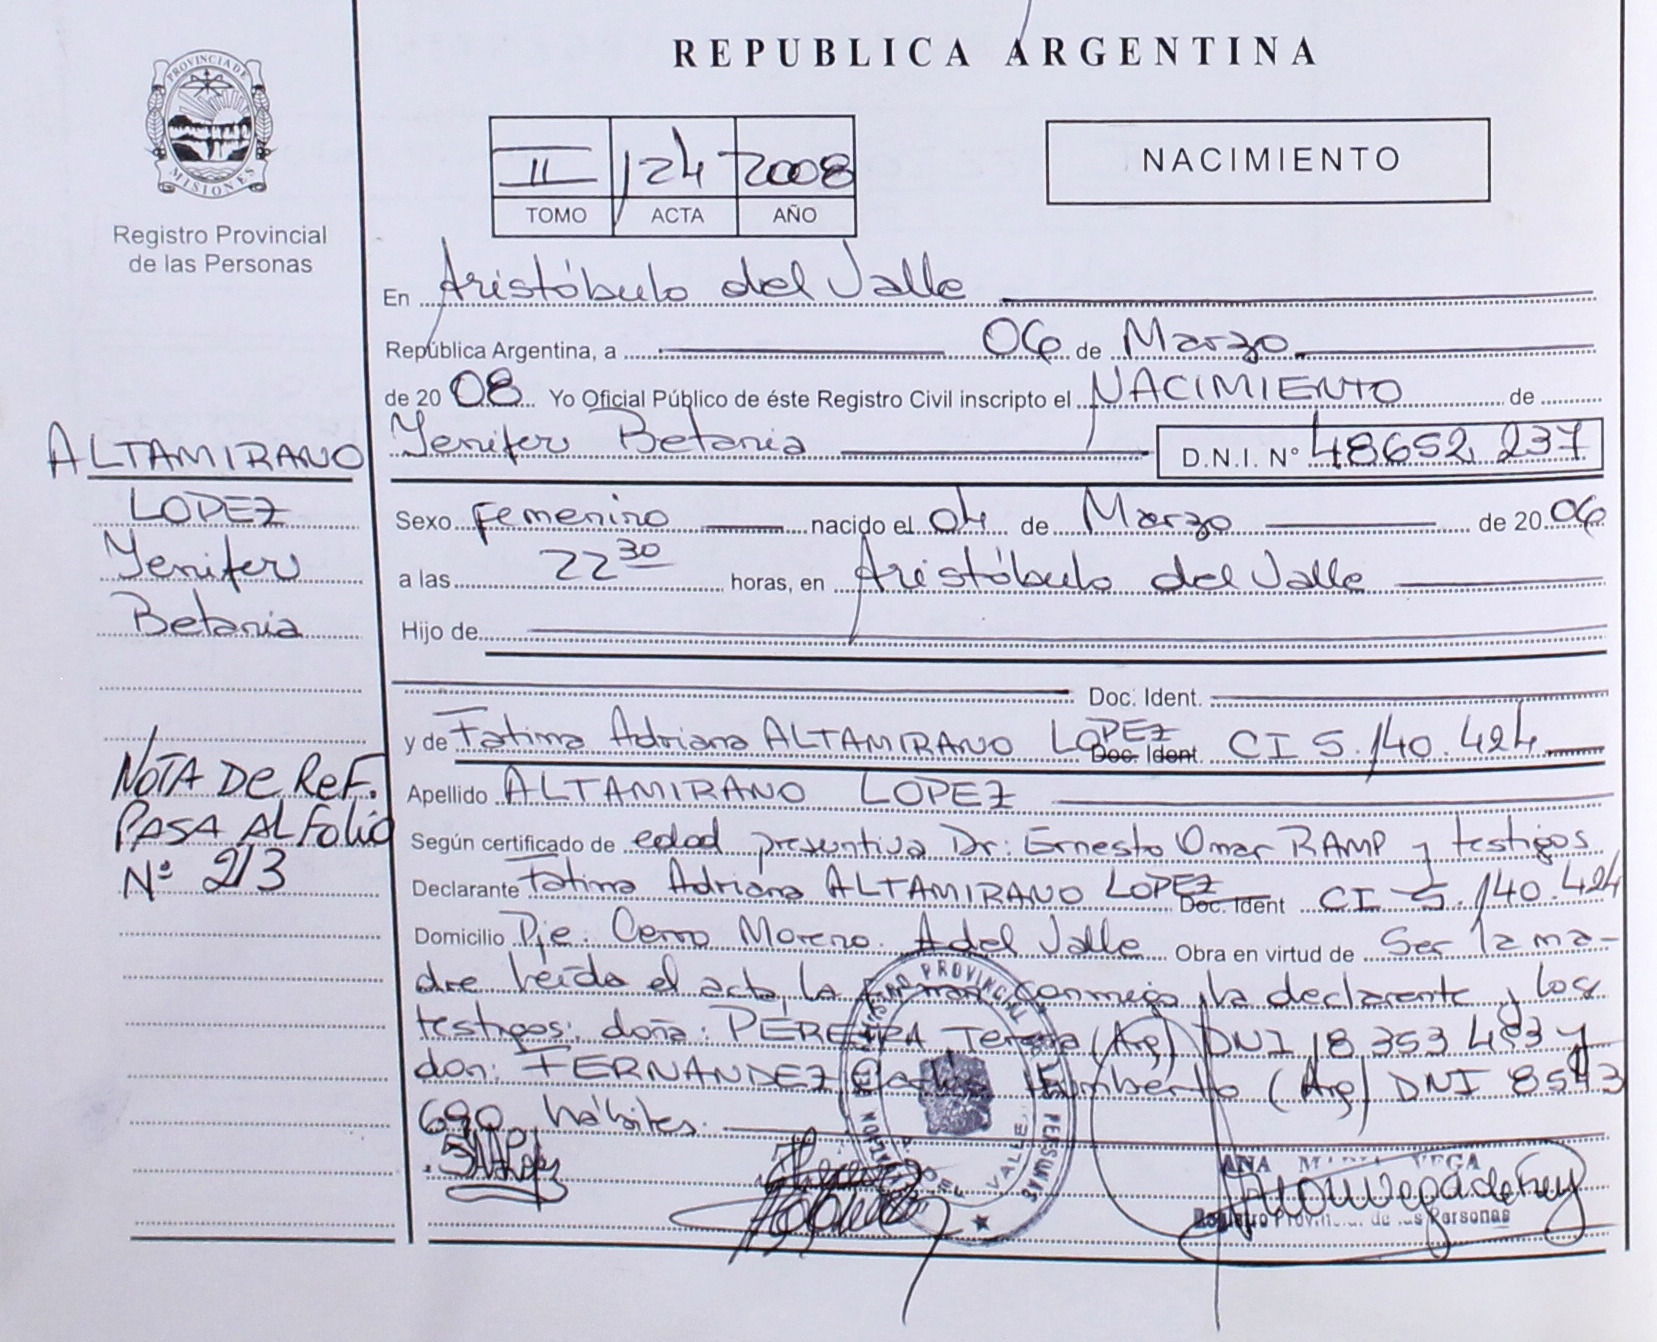 REPUBLICA ARGENTINA
PROVINCIA DE MISIONES
Registro Provincial
de las Personas
II 124 2008
TOMO ACTA AÑO
NACIMIENTO
En Aristóbulo del Valle
República Argentina, a 06 de Marzo
de 2008 Yo Oficial Público de éste Registro Civil inscripto el NACIMIENTO de
Yenifer Betania D.N.I. N° 48652237
Sexo femenino nacido el 04 de Marzo de 2006
a las 22 30 horas, en Aristóbulo del Valle
Hijo de
Doc. Ident.
y de Fatima Adriana ALTAMIRANO LOPEZ Doc. Ident CI 5.140.424
Apellido ALTAMIRANO LOPEZ
Según certificado de edad presuntiva Dr: Ernesto Omar RAMP y testigos
Declarante Fatima Adriana ALTAMIRANO LOPEZ Doc. Ident CI 5.140.424
Domicilio Pje. Cerro Moreno. A del Valle Obra en virtud de Ser la ma-
dre leída el acta, la firman conmigo, la declarante y los
testigos: doña: PEREIRA Teresa (Arg) DNI 18.353.483 y
don: FERNANDEZ Humberto (Arg) DNI 8543
690 hábiles.
ALTAMIRANO
LOPEZ
Yenifer
Betania
NOTA DE ReF.
PASA AL Folio
N° 213
PROVINCIAL PERSONAS
DEL VALLE
ANA VEGA
Registro Provincial de las Personas